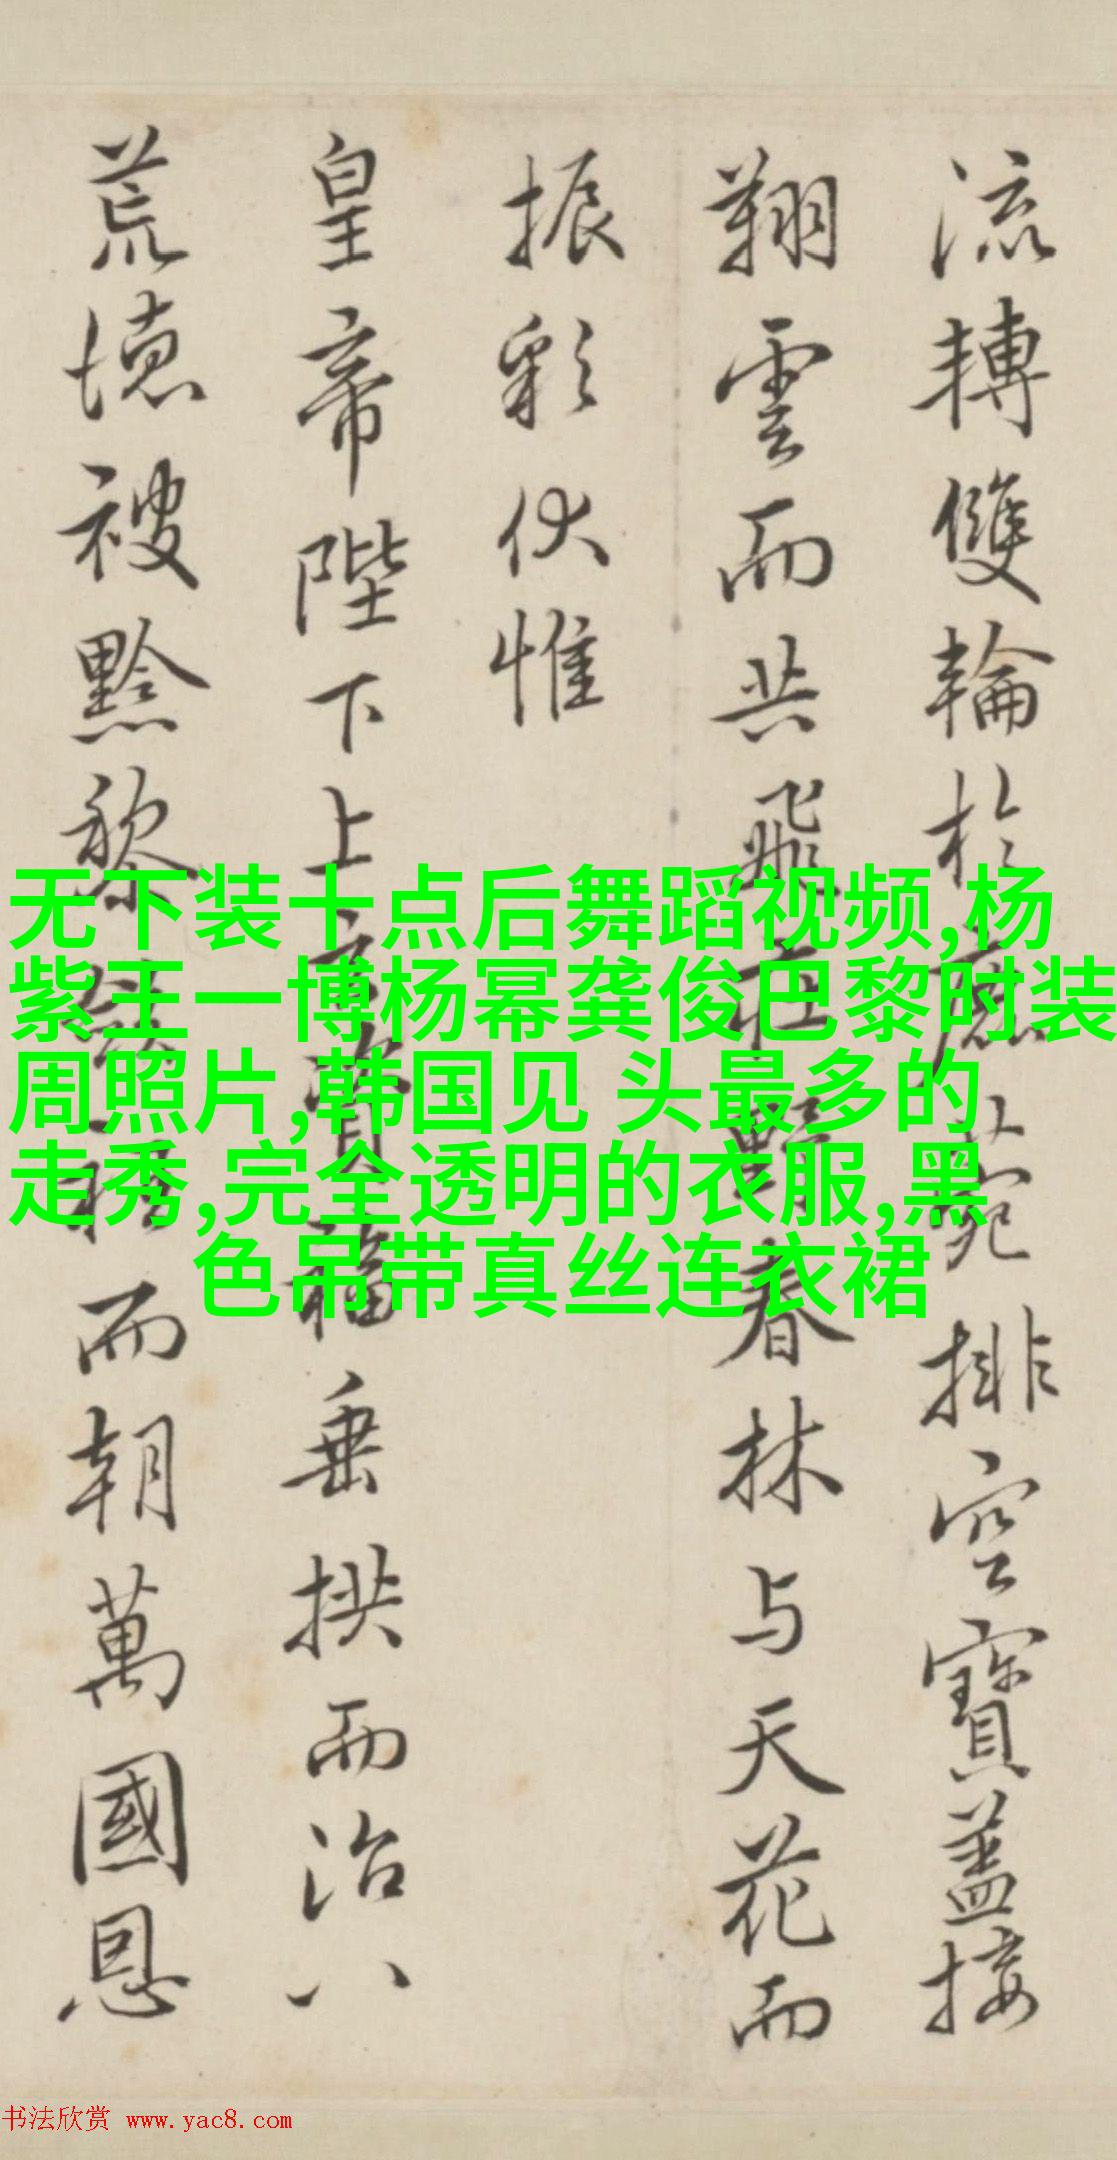 流轉雙輪於鹿菀排空寶蓋接
翔雲而共飛莊野春林与天花而
振彩伏惟
皇帝陛下上玄賚福垂拱而治八
荒德被黔黎斂衽而朝萬國恩
无下装十点后舞蹈视频,杨
紫王一博杨幂龚俊巴黎时装
周照片,韩国见 头最多的
走秀,完全透明的衣服,黑
色吊带真丝连衣裙
书法欣赏 www.yac8.com